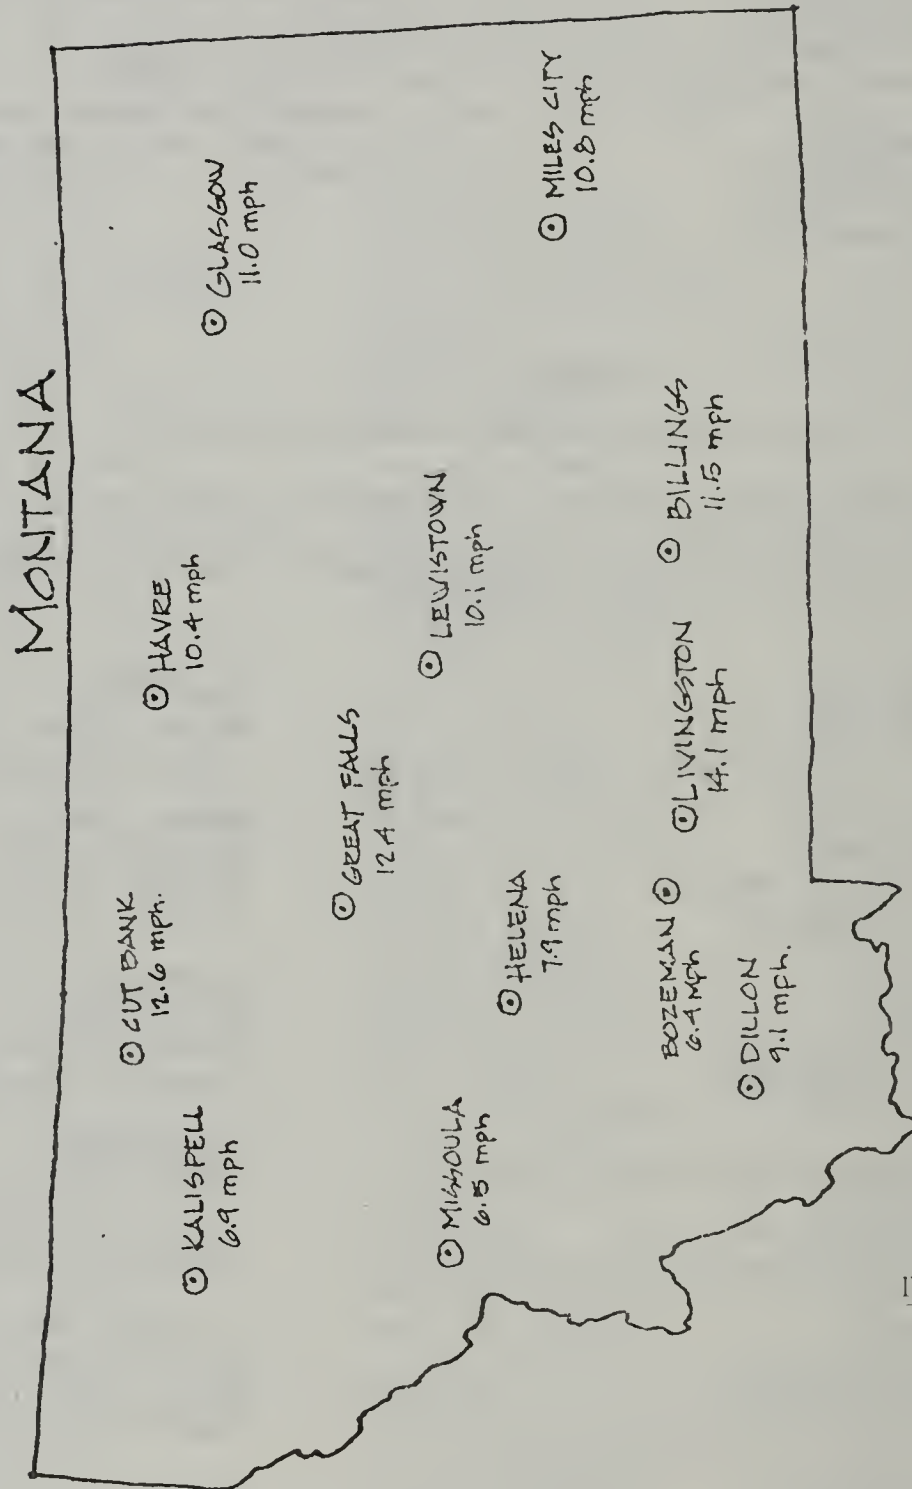 MONTANA
CUT BANK
12.6 mph.
HAVRE
10.4 mph
GLASGOW
11.0 mph
KALISPELL
6.9 mph
GREAT FALLS
12.4 mph
LEWISTOWN
10.1 mph
MISSOULA
6.5 mph
HELENA
7.9 mph
MILES CITY
10.8 mph
BOZEMAN
6.4 Mph
LIVINGSTON
14.1 mph
BILLINGS
11.5 mph
DILLON
9.1 mph.